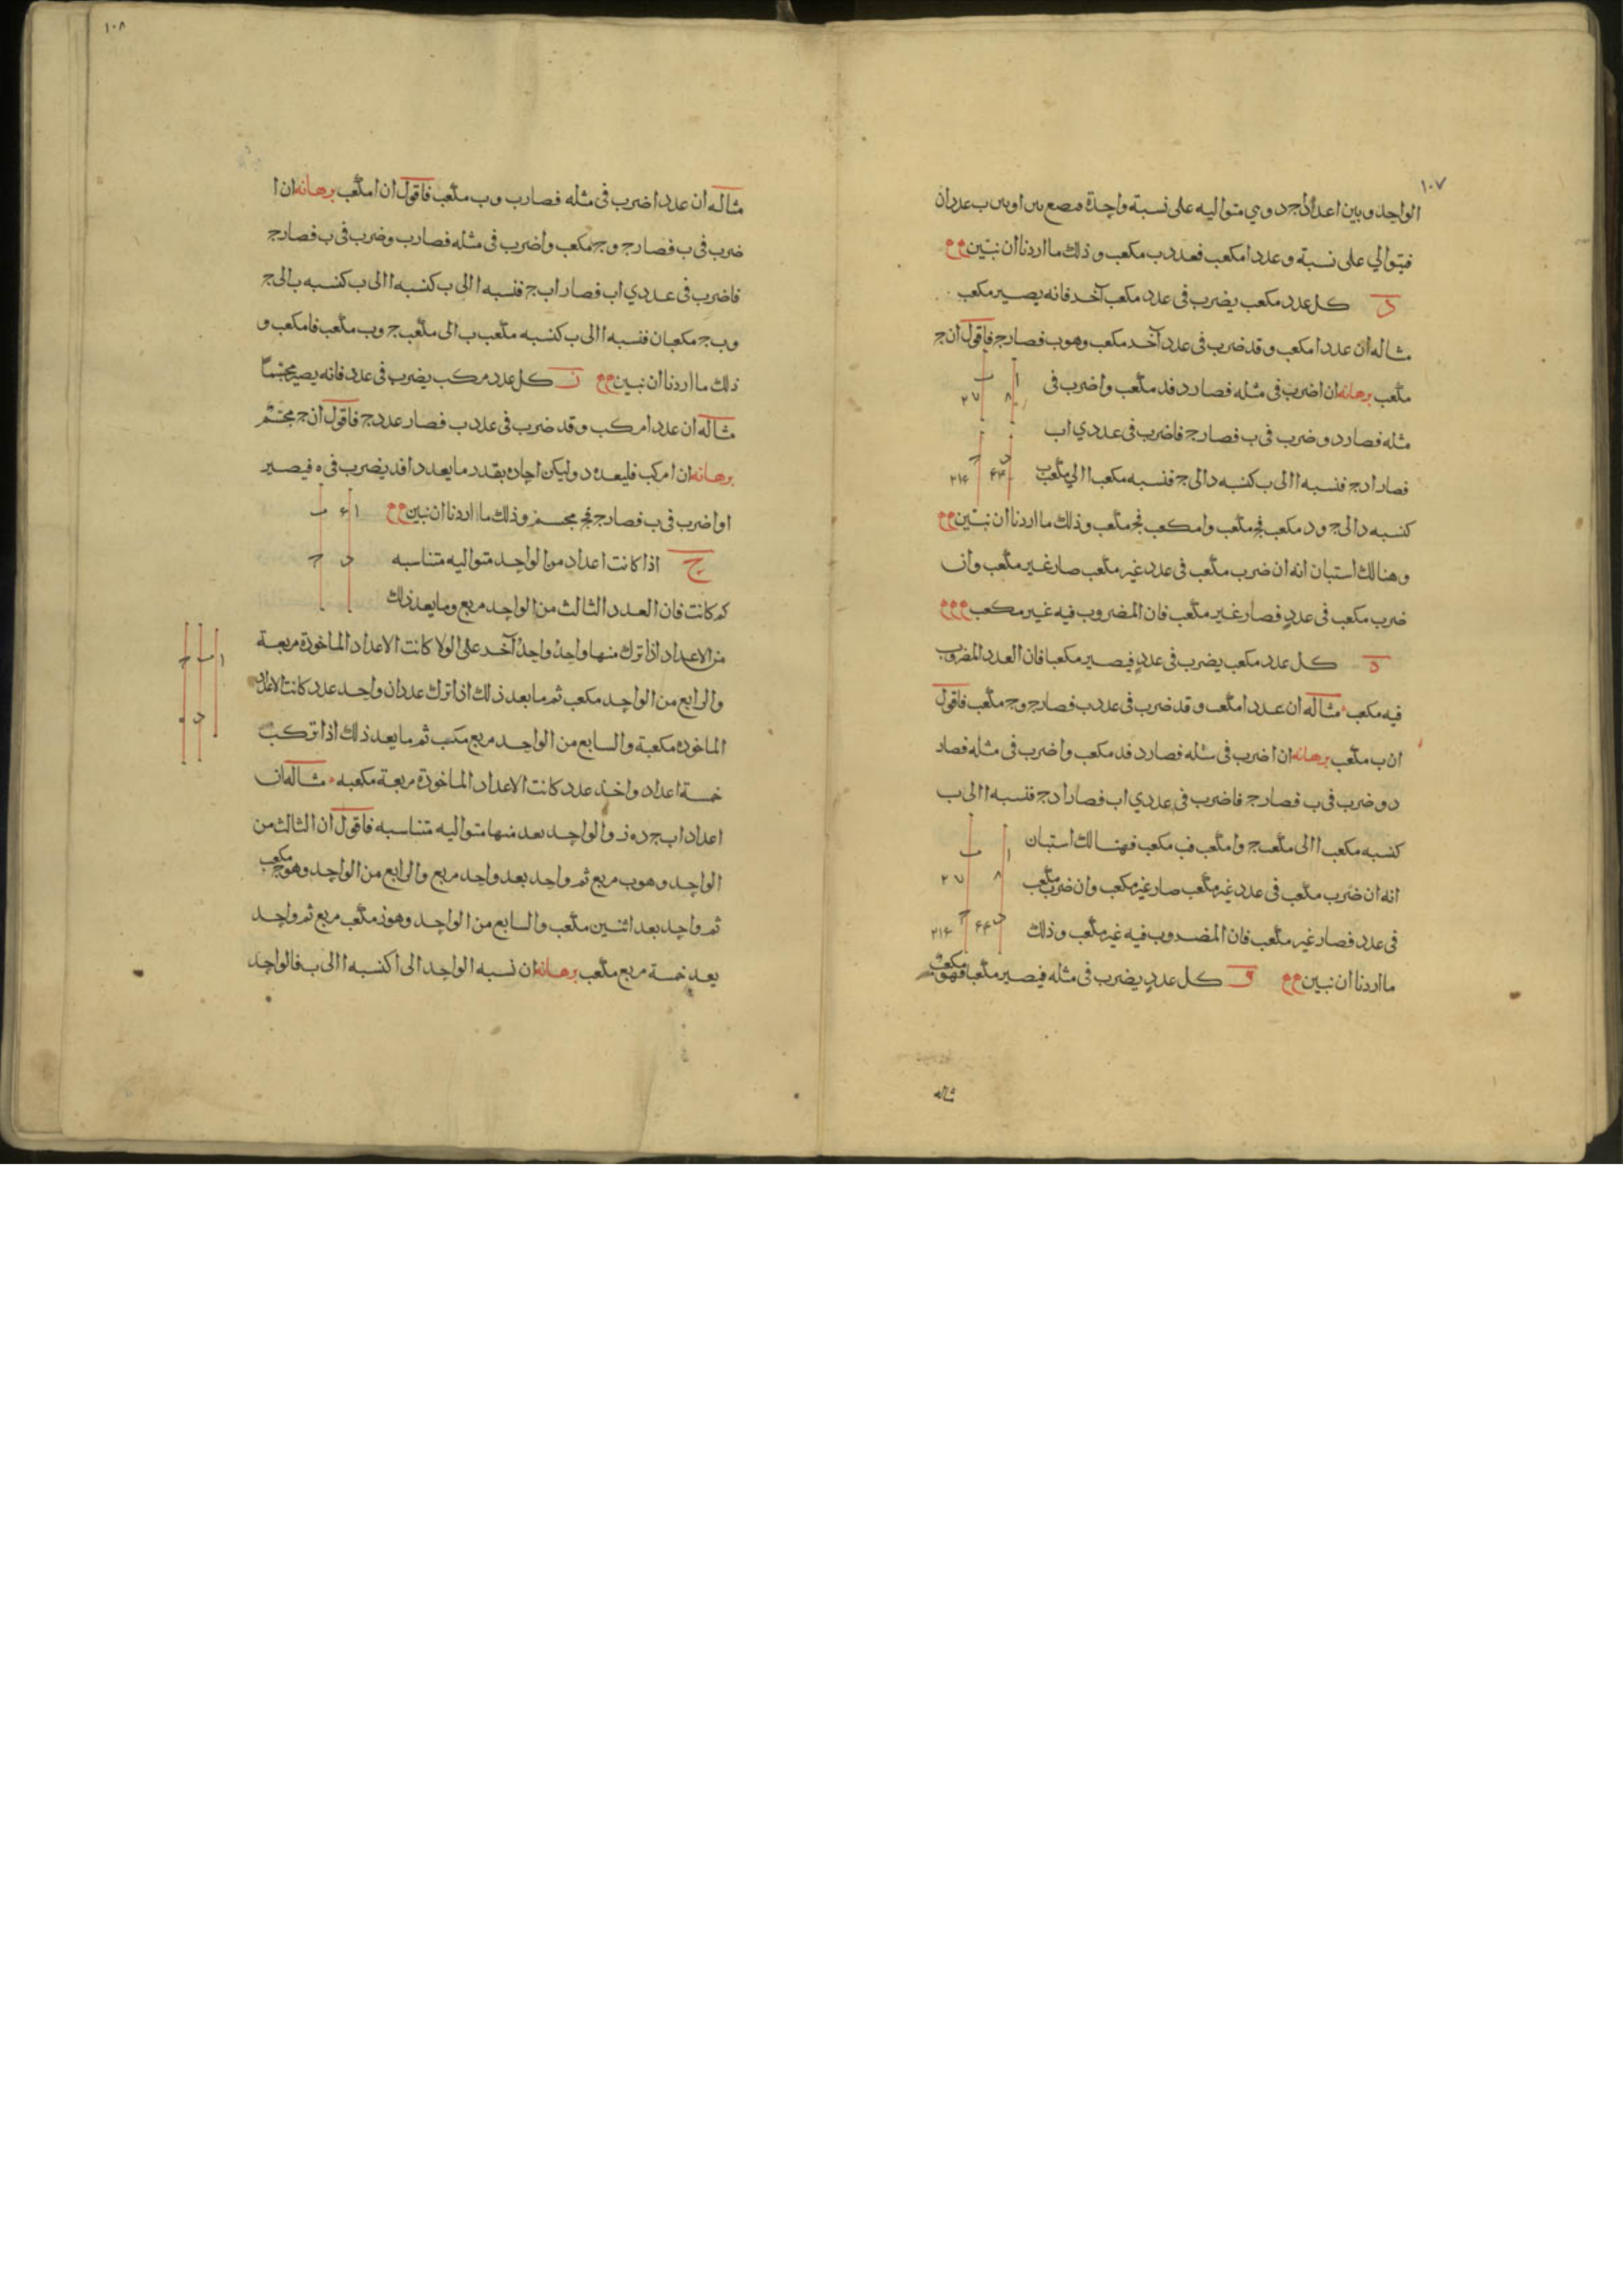 ١٠٧
الواحد وبين اعداد ا ج د و ي متواليه على نسبة واحدة ب عددان
فيتوالي على نسبة وعدد ا مكعب فعدد ب مكعب وذلك ما اردنا ان نبين
د كل عدد مكعب يضرب في عدد مكعب آخر فانه يصير مكعب
مثاله ان عدد ا مكعب وقد ضرب في عدد آخر مكعب وهو ب فصار ج فاقول ان ج
مكعب برهانه ان ا ضرب في مثله فصار د فد مكعب وا ضرب في
مثله فصار د وضرب في ب فصار ج فا ضرب في عددي اب
فصارا د ج فنسبه ا الى ب كنسبه د الى ج فنسبه مكعب ا الي مكعب ب
كنسبه د الى ج ود مكعب فج مكعب وا مكعب فج مكعب وذلك ما اردنا ان نبين
وهنالك استبان انه ان ضرب مكعب في عدد غير مكعب صار غير مكعب وان
ضرب مكعب في عدد فصار غير مكعب فان المضروب فيه غير مكعب
ه كل عدد مكعب يضرب في عدد فيصير مكعبا فان العدد المضروب
فيه مكعب مثاله ان عدد ا مكعب وقد ضرب في عدد ب فصار ج وج مكعب فاقول
ان ب مكعب برهانه ان ا ضرب في مثله فصار د فد مكعب وا ضرب في مثله فصار
د وضرب في ب فصار ج فا ضرب في عددي اب فصارا د ج فنسبه ا الى ب
كنسبه مكعب ا الى مكعب ج وا مكعب فب مكعب فهنالك استبان
انه ان ضرب مكعب في عدد غير مكعب صار غير مكعب وان ضرب مكعب
في عدد فصار غير مكعب فان المضروب فيه غير مكعب وذلك
ما اردنا ان نبين و كل عدد يضرب في مثله فيصير مكعبا فهو مكعب
مثاله
ا ب
٨ ٢٧
د ج
٦٤ ٢١٦
ا ب
٨ ٢٧
د ج
٦٤ ٢١٦
١٠٨
مثاله ان عدد ا ضرب في مثله فصار ب وب مكعب فاقول ان ا مكعب برهانه ان ا
ضرب في ب فصار ج وج مكعب وا ضرب في مثله فصار ب وضرب في ب فصار ج
فا ضرب في عددي اب فصار اب ج فنسبه ا الى ب كنسبه ا الى ب كنسبه ب الى ج
وب ج مكعبان فنسبه ا الى ب كنسبه مكعب ب الى مكعب ج وب مكعب فا مكعب و
ذلك ما اردنا ان نبين ز كل عدد مركب يضرب في عدد فانه يصير مجسما
مثاله ان عدد ا مركب وقد ضرب في عدد ب فصار عدد ج فاقول ان ج مجسم
برهانه ان ا مركب فليعده د وليكن احاد ه بقدر ما يعد د ا فد يضرب في ه فيصير
ا وا ضرب في ب فصار ج فج مجسم وذلك ما اردنا ان نبين
ح اذا كانت اعداد من الواحد متواليه متناسبه
كم كانت فان العدد الثالث من الواحد مربع وما بعد ذلك
من الاعداد اذا ترك منها واحد واحد آخر على الولا كانت الاعداد الماخوذة مربعة
والرابع من الواحد مكعب ثم ما بعد ذلك اذا ترك عددان واحد عدد كانت الاعداد
الماخوذة مكعبة والسابع من الواحد مربع مكعب ثم ما بعد ذلك اذا تركت
خمسة اعداد واخذ عدد كانت الاعداد الماخوذة مربعة مكعبه مثاله ان
اعداد اب ج د ه ز والواحد بعد منها متواليه متناسبه فاقول ان الثالث من
الواحد وهو ب مربع ثم واحد بعد واحد مربع والرابع من الواحد وهو ج مكعب
ثم واحد بعد اثنين مكعب والسابع من الواحد وهو ز مكعب مربع ثم واحد
بعد خمسة مربع مكعب برهانه ان نسبه الواحد الى ا كنسبه ا الى ب فالواحد
ا ٦ ب
د ج
ا ب ج
د ه